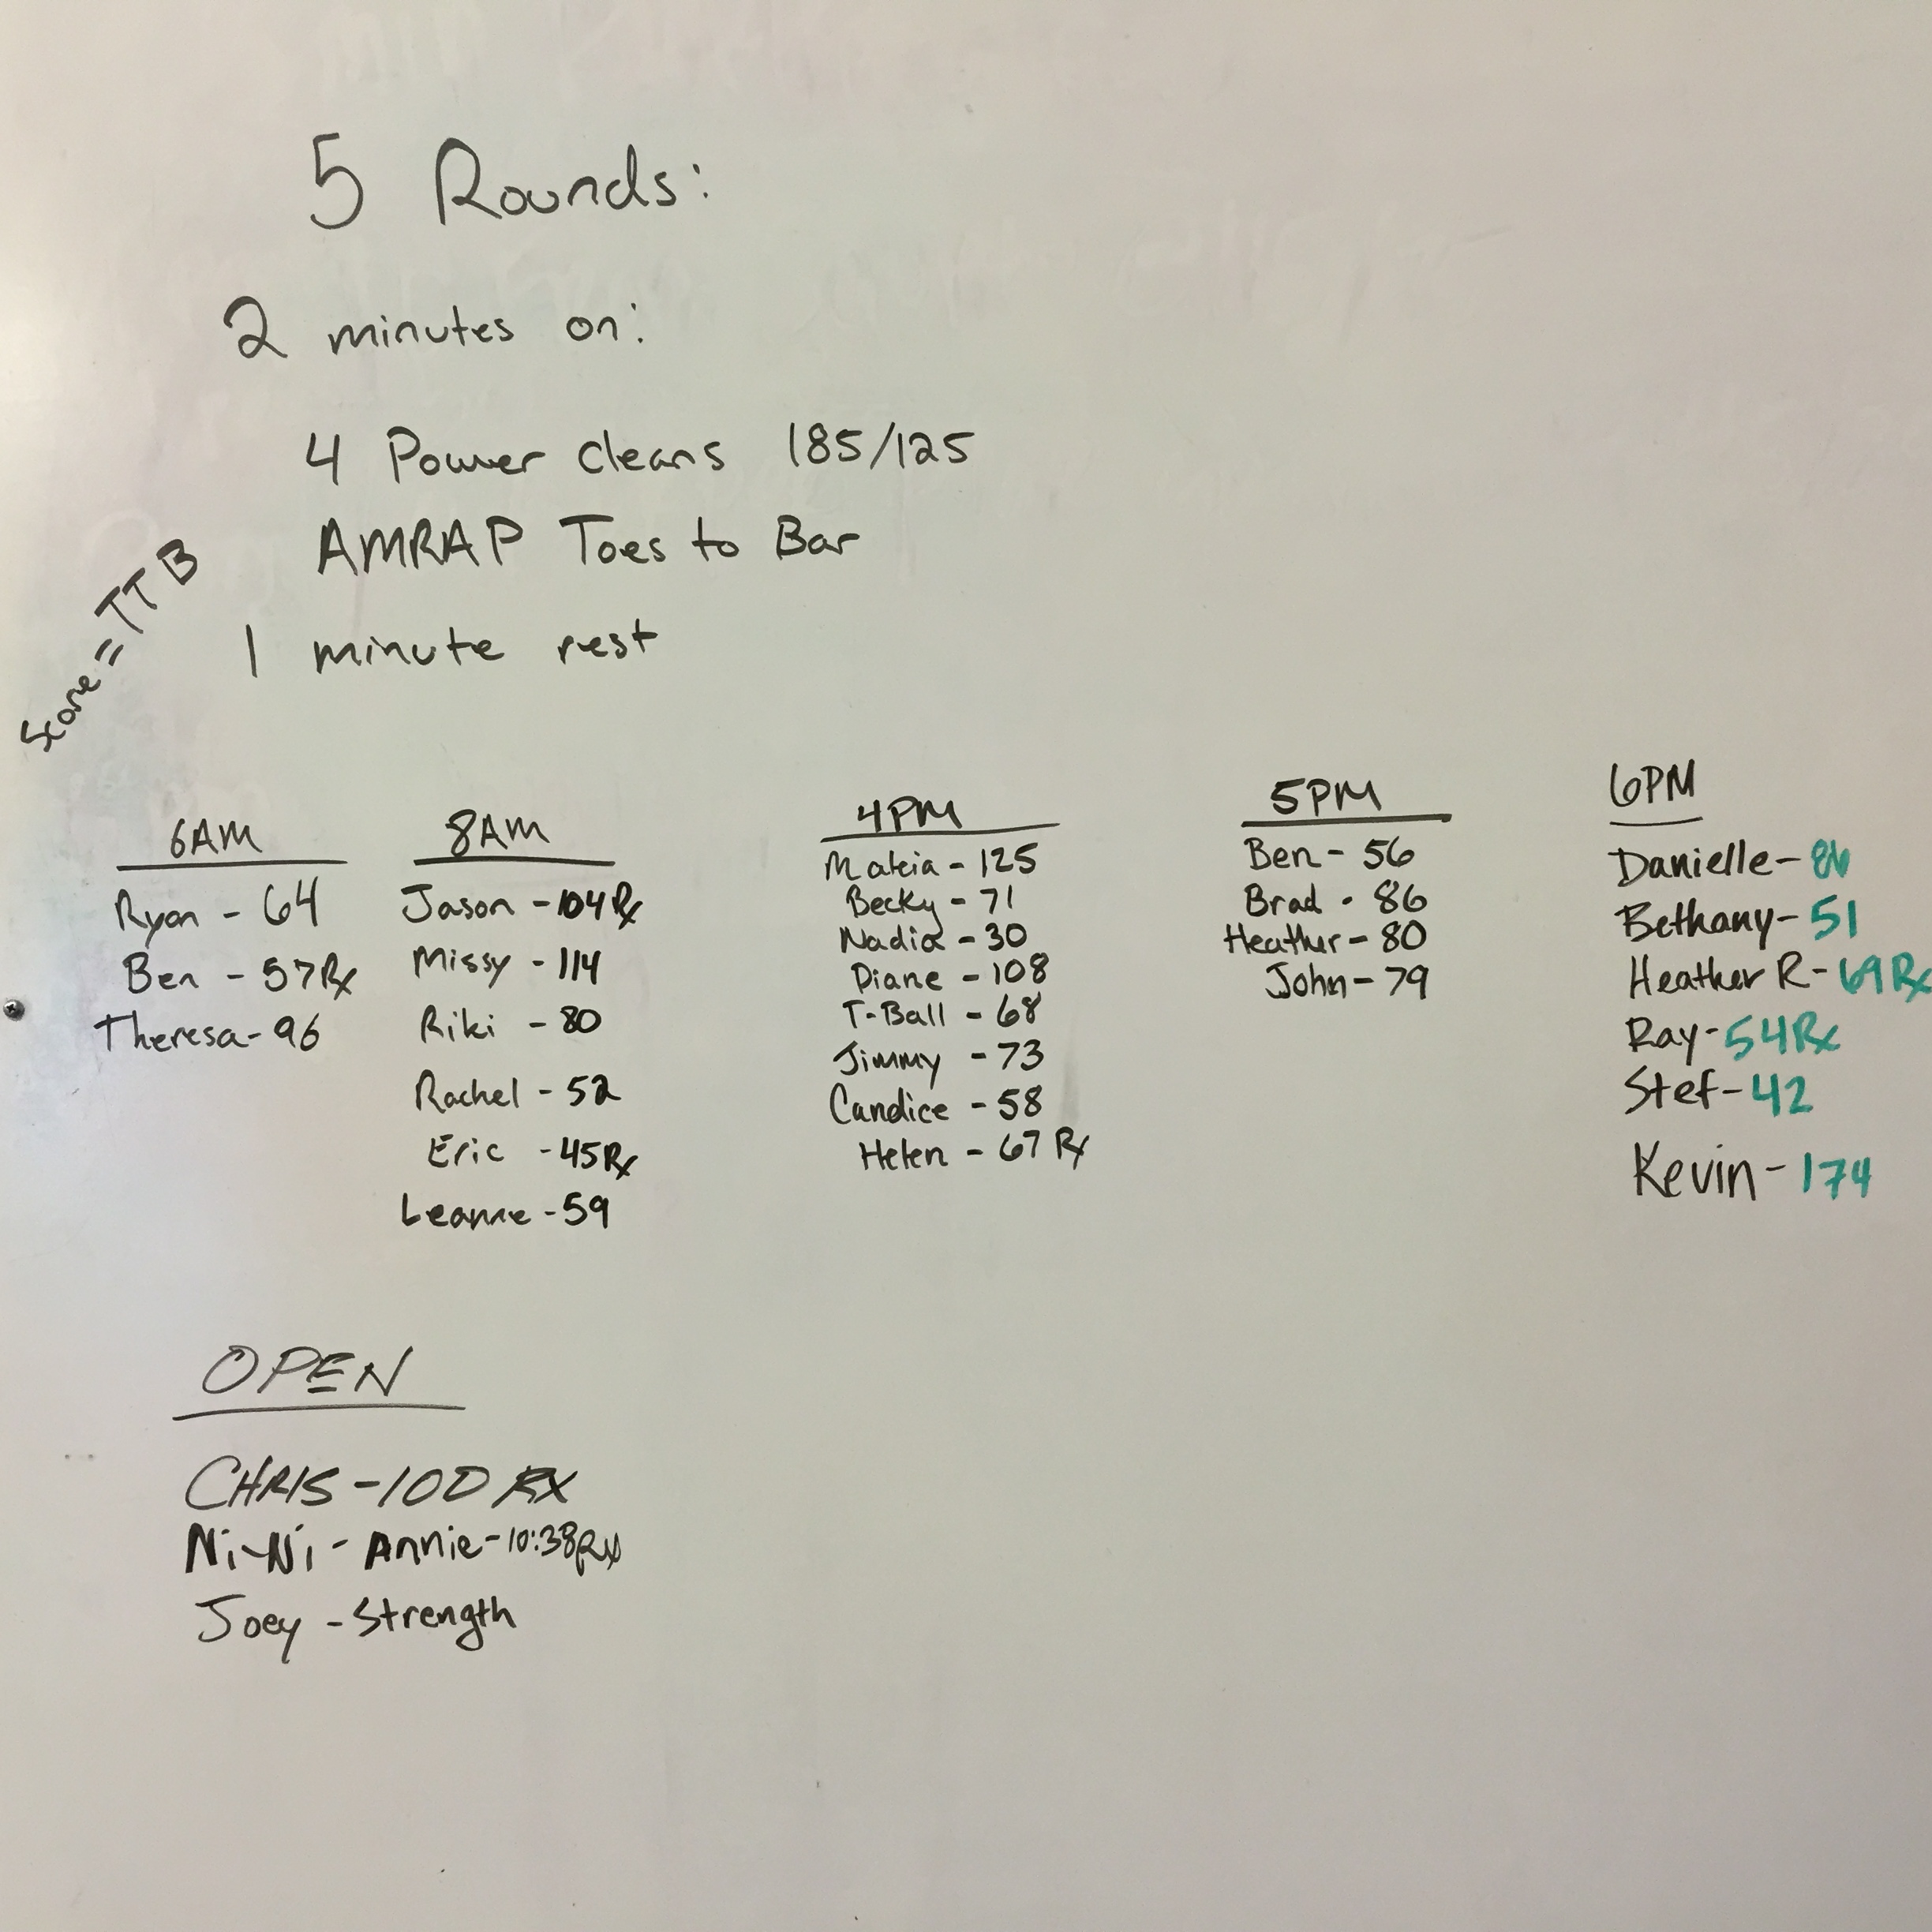 5 Rounds:
2 minutes on:
4 Power cleans 185/125
AMRAP Toes to Bar
1 minute rest
Score = TTB
6AM
Ryan - 64
Ben - 57 Rx
Theresa - 96
8AM
Jason - 104 Rx
Missy - 114
Riki - 80
Rachel - 52
Eric - 45 Rx
Leanne - 59
4PM
- 125
Becky - 71
Nadia - 30
Diane - 108
T-Ball - 68
Jimmy - 73
Candice - 58
Helen - 67 Rx
5PM
Ben - 56
Brad - 86
Heather - 80
John - 79
6PM
Danielle -
Bethany - 51
Heather R - 69 Rx
Ray - 54 Rx
Stef - 42
Kevin - 174
OPEN
CHRIS - 100 RX
Ni-Ni - Annie - 10:38 Rx
Joey - Strength